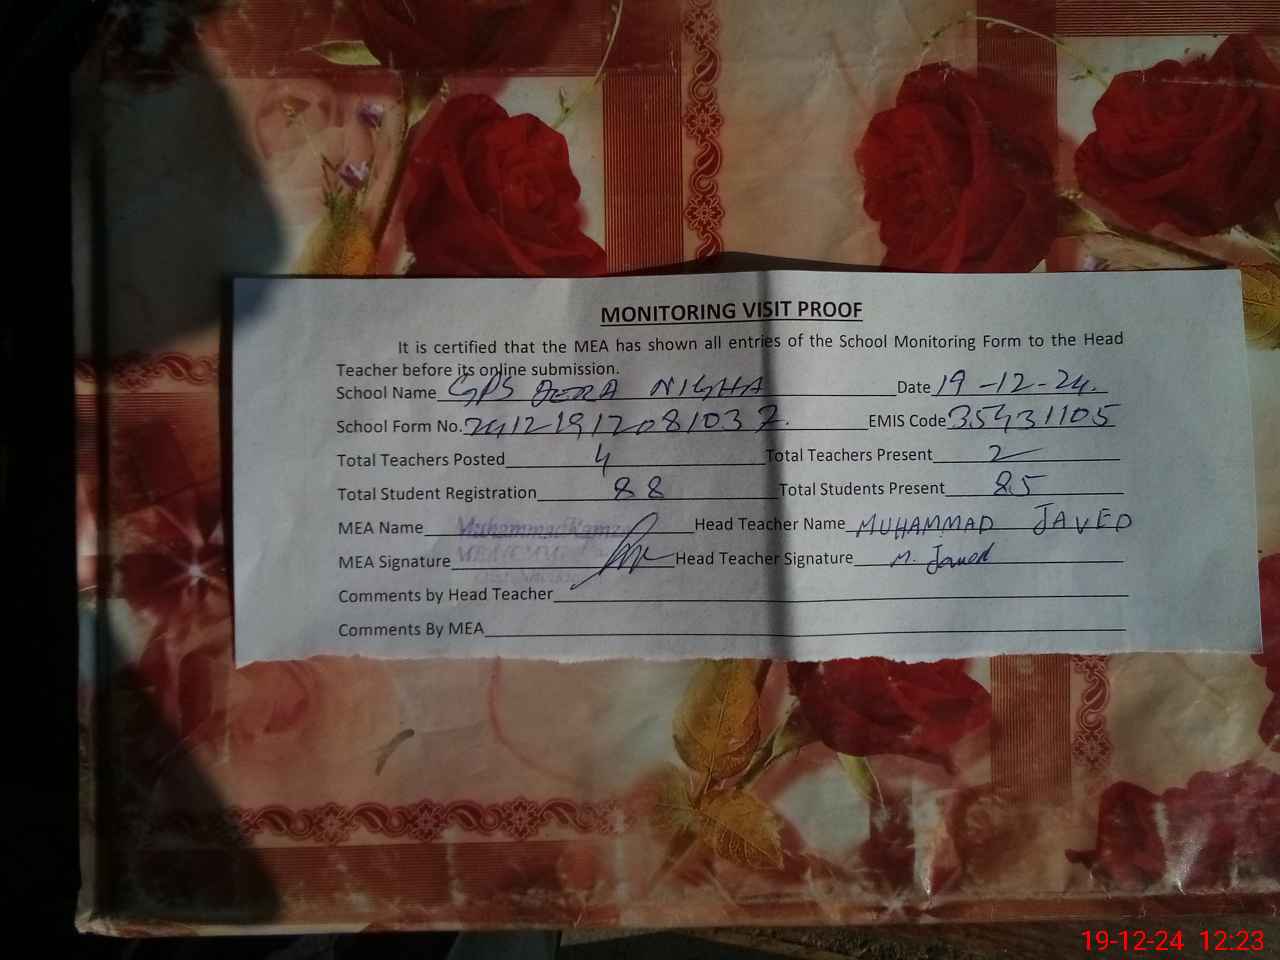 MONITORING VISIT PROOF
It is certified that the MEA has shown all entries of the School Monitoring Form to the Head
Teacher before its online submission.
School Name GPS DERA NIGHA Date 19-12-24.
School Form No. EMIS Code 35431105
Total Teachers Posted 4 Total Teachers Present 2
Total Student Registration 88 Total Students Present 85
MEA Name Muhammad Head Teacher Name MUHAMMAD JAVED
MEA Signature Head Teacher Signature M. Javed
Comments by Head Teacher
Comments By MEA
19-12-24 12:23